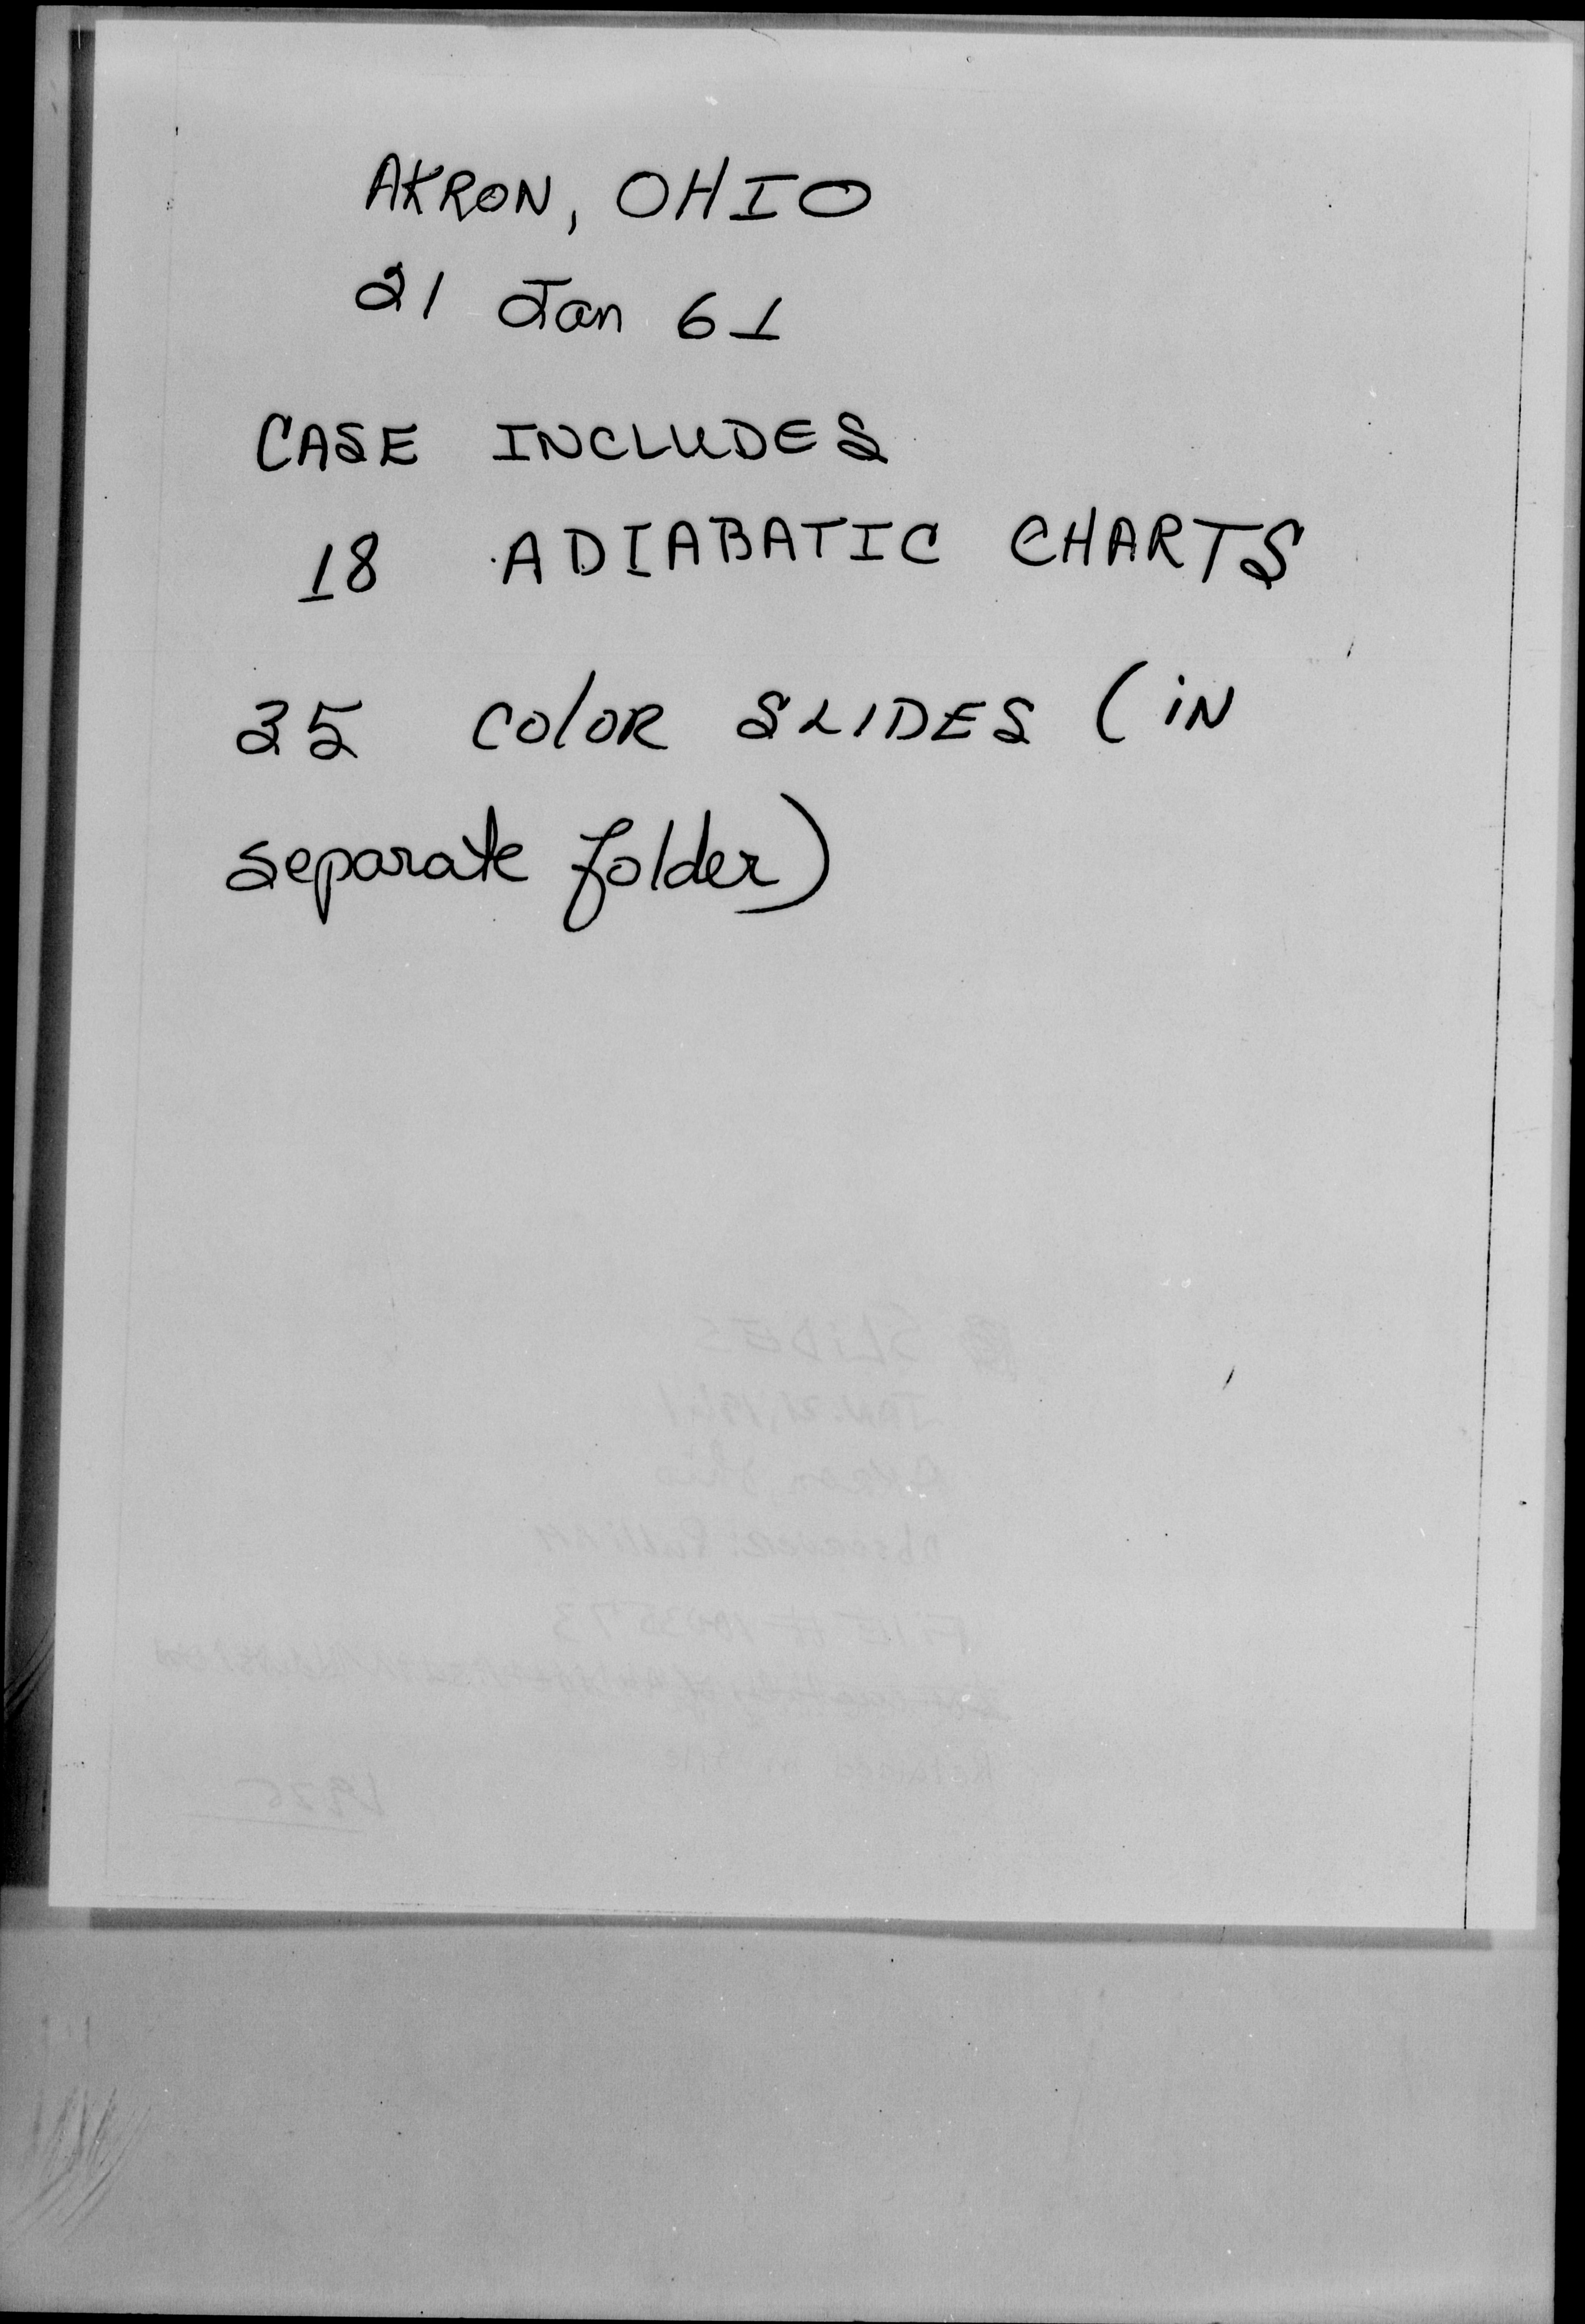 AKRON, OHIO
21 Jan 61
CASE INCLUDES
18 ADIABATIC CHARTS
35 COlOR SLIDES (iN
separate folder)
SLIDES
JAN. 21, 1961
Akron Ohio
Observer:
FILE #